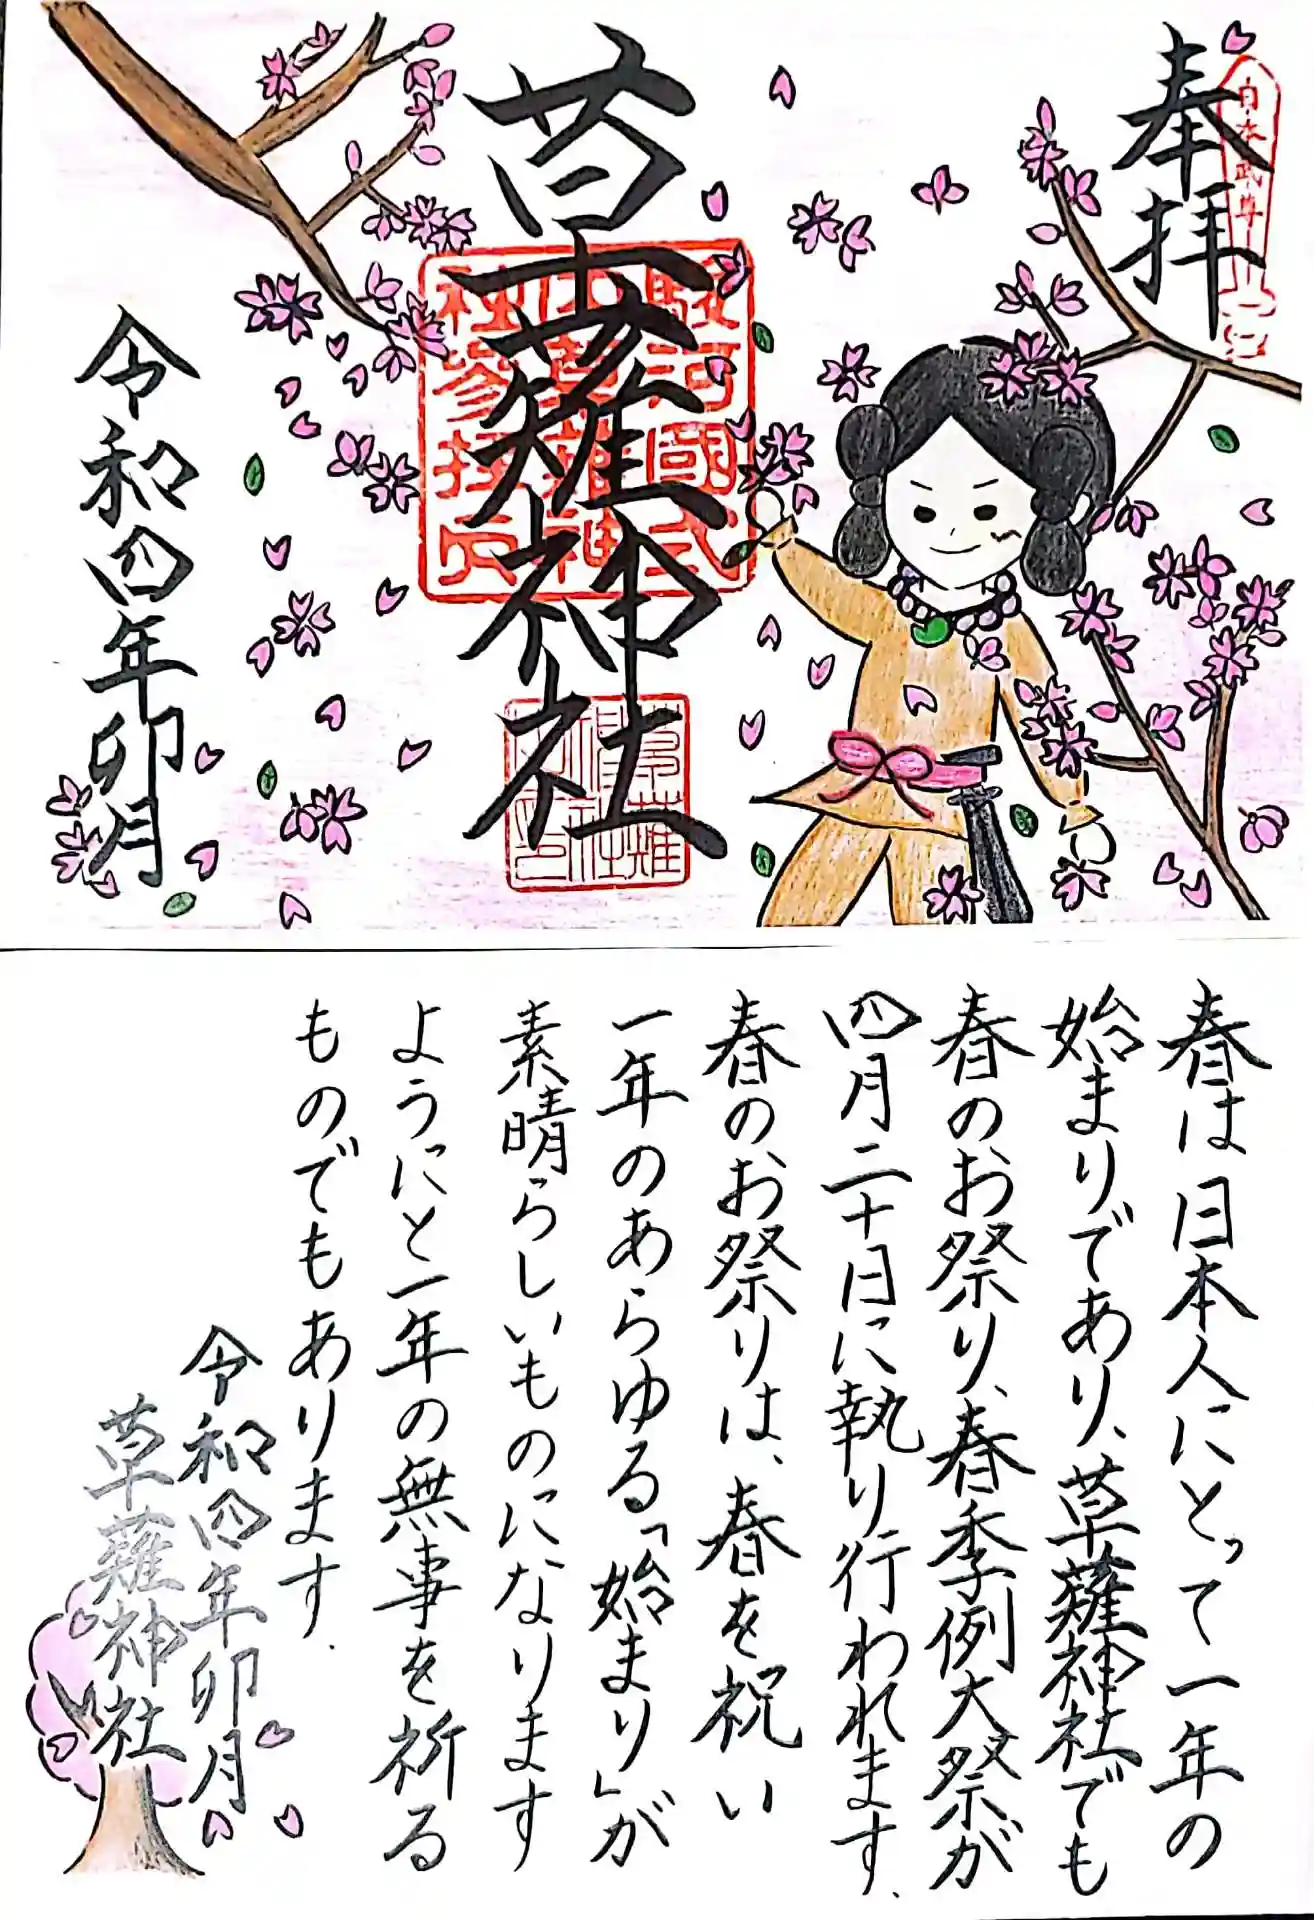 奉拝
日本武尊
草薙神社
令和四年卯月
春は日本人にとって一年の
始まりであり、草薙神社でも
春のお祭り、春季例大祭が
四月二十日に執り行われます、
春のお祭りは、春を祝い
一年のあらゆる「始まり」が
素晴らしいものになります
ようにと一年の無事を祈る
ものでもあります.
令和四年卯月
草薙神社